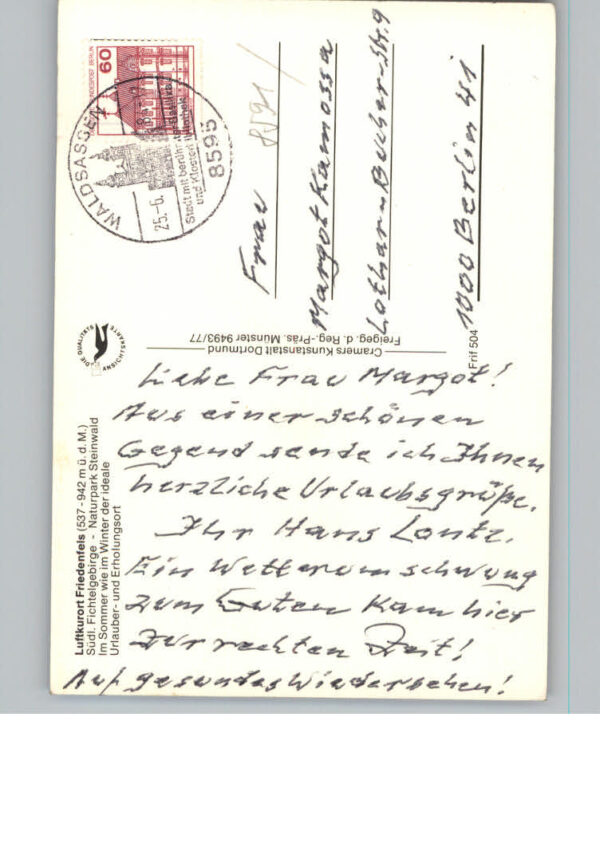 Luftkurort Friedenfels (537-942 m ü. d. M.)
Südl. Fichtelgebirge - Naturpark Steinwald
Im Sommer wie im Winter der ideale
Urlauber- und Erholungsort
DIE QUALITÄTS
ANSICHTSKARTE
Cramers Kunstanstalt Dortmund
Freigeg. d. Reg.-Präs. Münster 9493/77
Frif 504
DEUTSCHE BUNDESPOST BERLIN
60
WALDSASSEN
25.-6.
Stadt mit berühmter Basilika
und Klosterbibliothek
8595
8591/
Frau
Margot Kamossa
Lothar-Bucher-Str. 9
1000 Berlin 41
Liebe Frau Margot!
Aus einer schönen
Gegend sende ich Ihnen
herzliche Urlaubsgrüße.
Ihr Hans Lontz.
Ein Wetterumschwung
zum Guten kam hier
zur rechten Zeit!
Auf gesundes Wiedersehen!